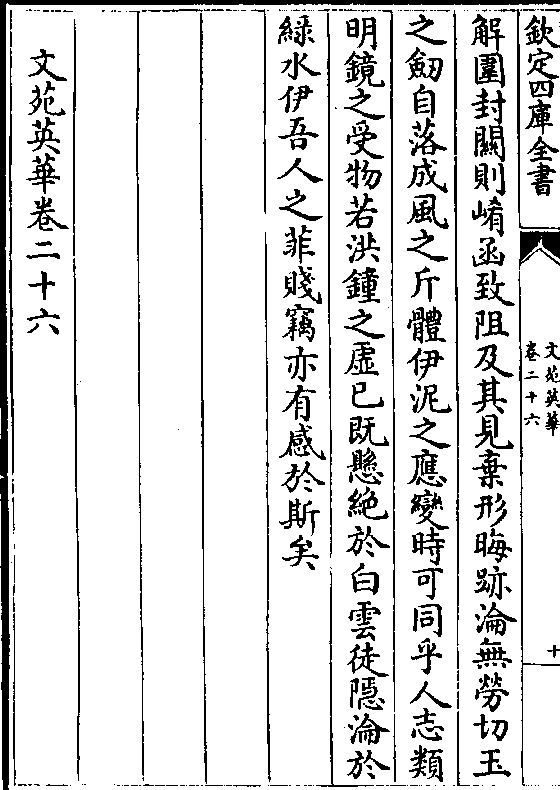 欽定四庫全書
文苑英華
卷二十六
十
解圍封關則崤函致阻及其見棄形晦跡淪無勞切玉
之劒自落成風之斤體伊泥之應變時可同乎人志類
明鏡之受物若洪鐘之虛已既懸絶於白雲徒隱淪於
綠水伊吾人之菲賤竊亦有感於斯矣
文苑英華卷二十六